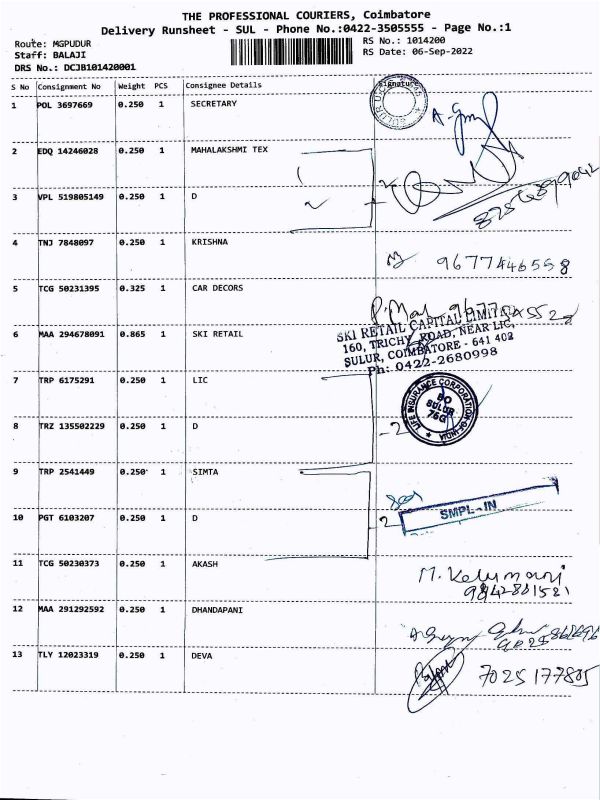 THE PROFESSIONAL COURIERS, Coimbatore
Delivery Runsheet - SUL - Phone No.:0422-3505555 - Page No.:1
Route: MGPUDUR
Staff: BALAJI
DRS No.: DCJB101420001
RS No.: 1014200
RS Date: 06-Sep-2022
S No Consignment No Weight PCS Consignee Details Signature
1 POL 3697669 0.250 1 SECRETARY
2 EDQ 14246028 0.250 1 MAHALAKSHMI TEX
3 VPL 519805149 0.250 1 D
4 TNJ 7848097 0.250 1 KRISHNA
9677446558
5 TCG 50231395 0.325 1 CAR DECORS
6 MAA 294678091 0.865 1 SKI RETAIL
SKI RETAIL CAPITAL LIMITED
160, TRICHY ROAD, NEAR LIC,
SULUR, COIMBATORE - 641 402
Ph: 0422-2680998
7 TRP 6175291 0.250 1 LIC
LIFE INSURANCE CORPORATION OF INDIA
BO
SULUR
76G
8 TRZ 135502229 0.250 1 D
2
9 TRP 2541449 0.250 1 SIMTA
10 PGT 6103207 0.250 1 D
2
SMPL-IN
11 TCG 50230373 0.250 1 AKASH
9842801521
12 MAA 291292592 0.250 1 DHANDAPANI
13 TLY 12023319 0.250 1 DEVA
7025177805